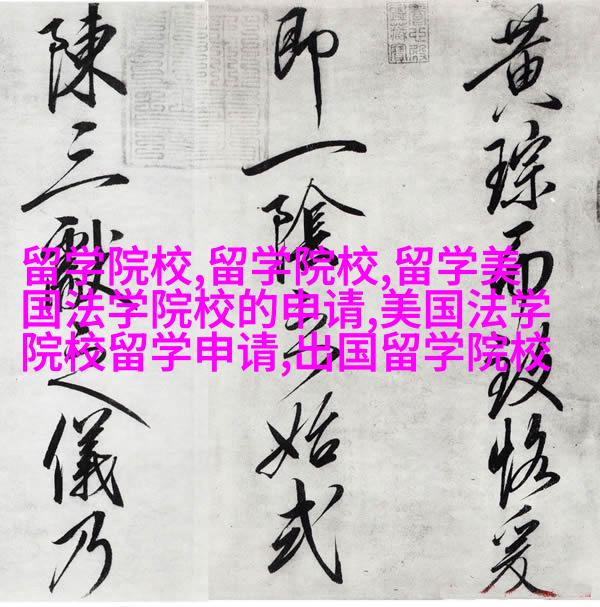 黄琮而致恪爰
即一陰之始式
陳三獻之儀乃
留学院校,留学院校,留学美
国法学院校的申请,美国法学
院校留学申请,出国留学院校